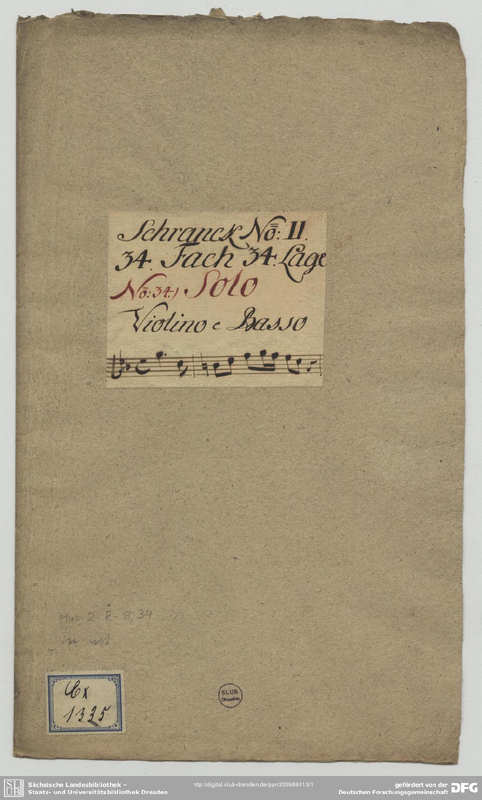 Schranck No: II.
34. Fach 34. Lage
No: 34.) Solo
Violino e Basso
Mus 2-R-8,34
Cx
1335
SLUB
Dresden
Sächsische Landesbibliothek -
Staats- und Universitätsbibliothek Dresden
http://digital.slub-dresden.de/ppn335986013/1
gefördert von der
Deutschen Forschungsgemeinschaft
DFG